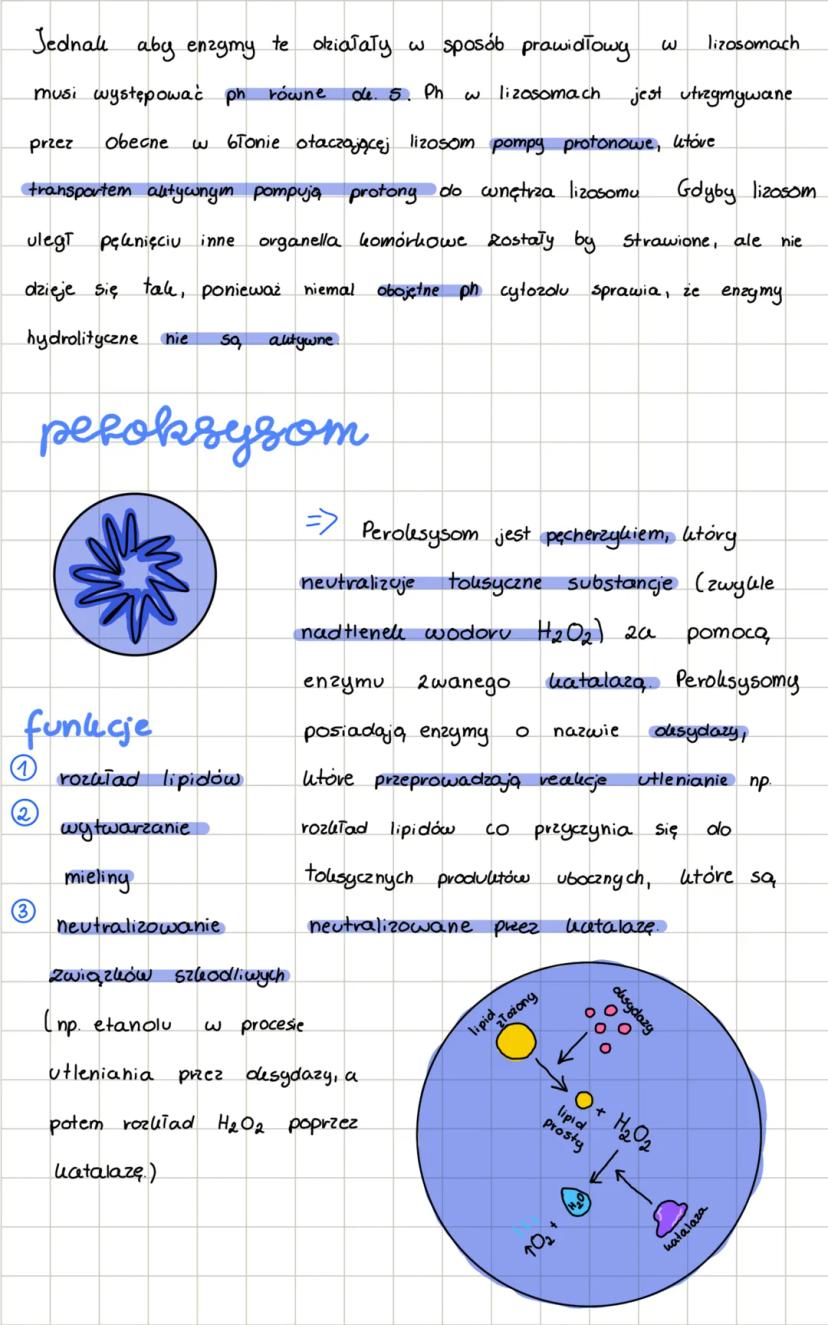 Jednak aby enzymy te działały w sposób prawidłowy w lizosomach
musi występować ph równe ok. 5. Ph w lizosomach jest utrzymywane
przez obecne w błonie otaczającej lizosom pompy protonowe, które
transportem aktywnym pompują protony do wnętrza lizosomu Gdyby lizosom
uległ pęknięciu inne organella komórkowe zostały by strawione, ale nie
dzieje się tak, ponieważ niemal obojętne ph cytozolu sprawia, że enzymy
hydrolityczne nie są aktywne.
peroksysom
⇒ Peroksysom jest pęcherzykiem, który
neutralizuje toksyczne substancje (zwykle
nadtlenek wodoru H₂O₂) za pomocą
enzymu zwanego katalazą. Peroksysomy
posiadają enzymy o nazwie oksydazy,
które przeprowadzają reakcje utlenianie np.
rozkład lipidów co przyczynia się do
toksycznych produktów ubocznych, które są
neutralizowane przez katalazę.
funkcje
① rozkład lipidów
② wytwarzanie
mieliny
③ neutralizowanie
związków szkodliwych
(np. etanolu w procesie
utleniania przez oksydazy, a
potem rozkład H₂O₂ poprzez
katalazę.)
lipid
złożony
oksydazy
lipid
prosty
+ H₂O₂
H₂O
↑O₂ +
katalaza